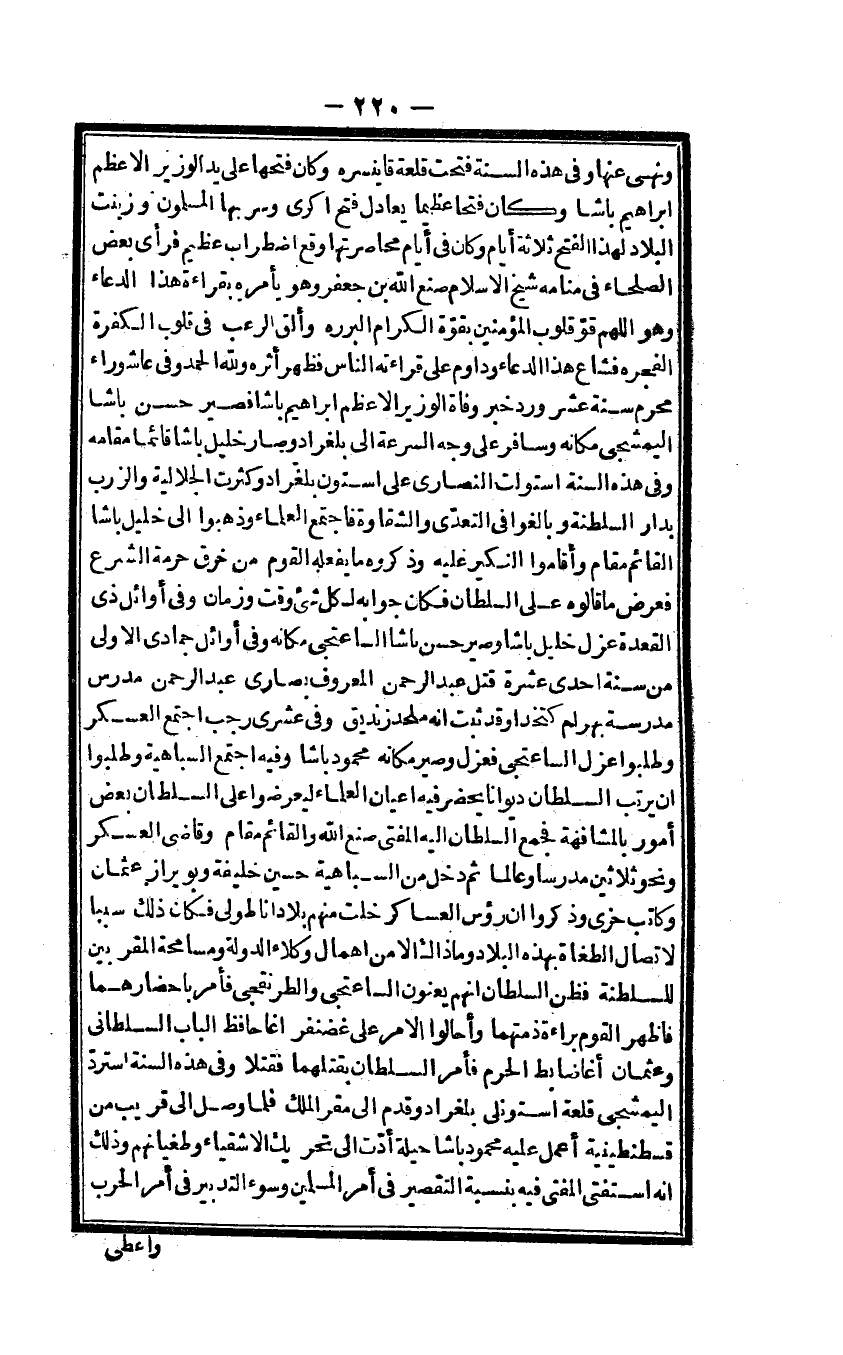 — ٢٢٠ —
ونهى عنها وفى هذه السنة فتحت قلعة قانيسره وكان فتحها على يد الوزير الاعظم
ابراهيم باشا وكان فتحا عظيما يعادل فتح اكرى وسر بها المسلمون وزينت
البلاد لهذا الفتح ثلاثة أيام وكان فى أيام محاصرتها وقع اضطراب عظيم فرأى بعض
الصلحاء فى منامه شيخ الاسلام صنع الله بن جعفر وهو يأمره بقراءة هذا الدعاء
وهو اللهم قوّ قلوب المؤمنين بقوّة الكرام البرره وألق الرعب فى قلوب الكفرة
الفجره فشاع هذا الدعاء وداوم على قراءته الناس فظهر أثره ولله الحمد وفى عاشوراء
محرم سنة عشر ورد خبر وفاة الوزير الاعظم ابراهيم باشا فصير حسن باشا
اليمشجى مكانه وسافر على وجه السرعة الى بلغراد وصار خليل باشا قائما مقامه
وفى هذه السنة استولت النصارى على استون بلغراد وكثرت الجلالية والزرب
بدار السلطنة وبالغوا فى التعدّى والشقاوة فاجتمع العلماء وذهبوا الى خليل باشا
القائم مقام وأقاموا النكير عليه وذكروه ما يفعله القوم من خرق حرمة الشرع
فعرض ماقالوه على السلطان فكان جوابه لكل شئ وقت وزمان وفى أوائل ذى
القعدة عزل خليل باشا وصير حسن باشا الساعتجى مكانه وفى أوائل جمادى الاولى
من سنة احدى عشرة قتل عبد الرحمن المعروف بصارى عبد الرحمن مدرس
مدرسة بهرام كتخدا وقد ثبت انه ملحد زنديق وفى عشرى رجب اجتمع العسكر
وطلبوا عزل الساعتجى فعزل وصير مكانه محمود باشا وفيه اجتمع السباهية وطلبوا
ان يرتب السلطان ديوانا يحضر فيه اعيان العلماء ليعرضوا على السلطان بعض
أمور بالمشافهة فجمع السلطان اليه المفتى صنع الله والقائم مقام وقاضى العسكر
ونحو ثلاثين مدرسا وعالما ثم دخل من السباهية حسين خليفة وبويراز عثمان
وكاتب حزى وذكروا ان رؤس العساكر خلت منهم بلاد اناطولى فكان ذلك سببا
لاتصال الطغاة بهذه البلاد وماذاك الا من اهمال وكلاء الدولة ومسامحة المقربين
للسلطنة فظن السلطان انهم يعنون الساعتجى والطرنقجى فأمر باحضارهما
فاظهر القوم براءة ذمتهما وأحالوا الامر على غضنفر اغا حافظ الباب السلطانى
وعثمان أغا ضابط الحرم فأمر السلطان بقتلهما فقتلا وفى هذه السنة استردّ
اليمشجى قلعة استونلى بلغراد وقدم الى مقر الملك فلما وصل الى قريب من
قسطنطينية أعمل عليه محمود باشا حيلة أدّت الى تحريك الاشقياء وطغيانهم وذلك
انه استفتى المفتى فيه بنسبة التقصير فى أمر المسلمين وسوء التدبير فى أمر الحرب
واعطى